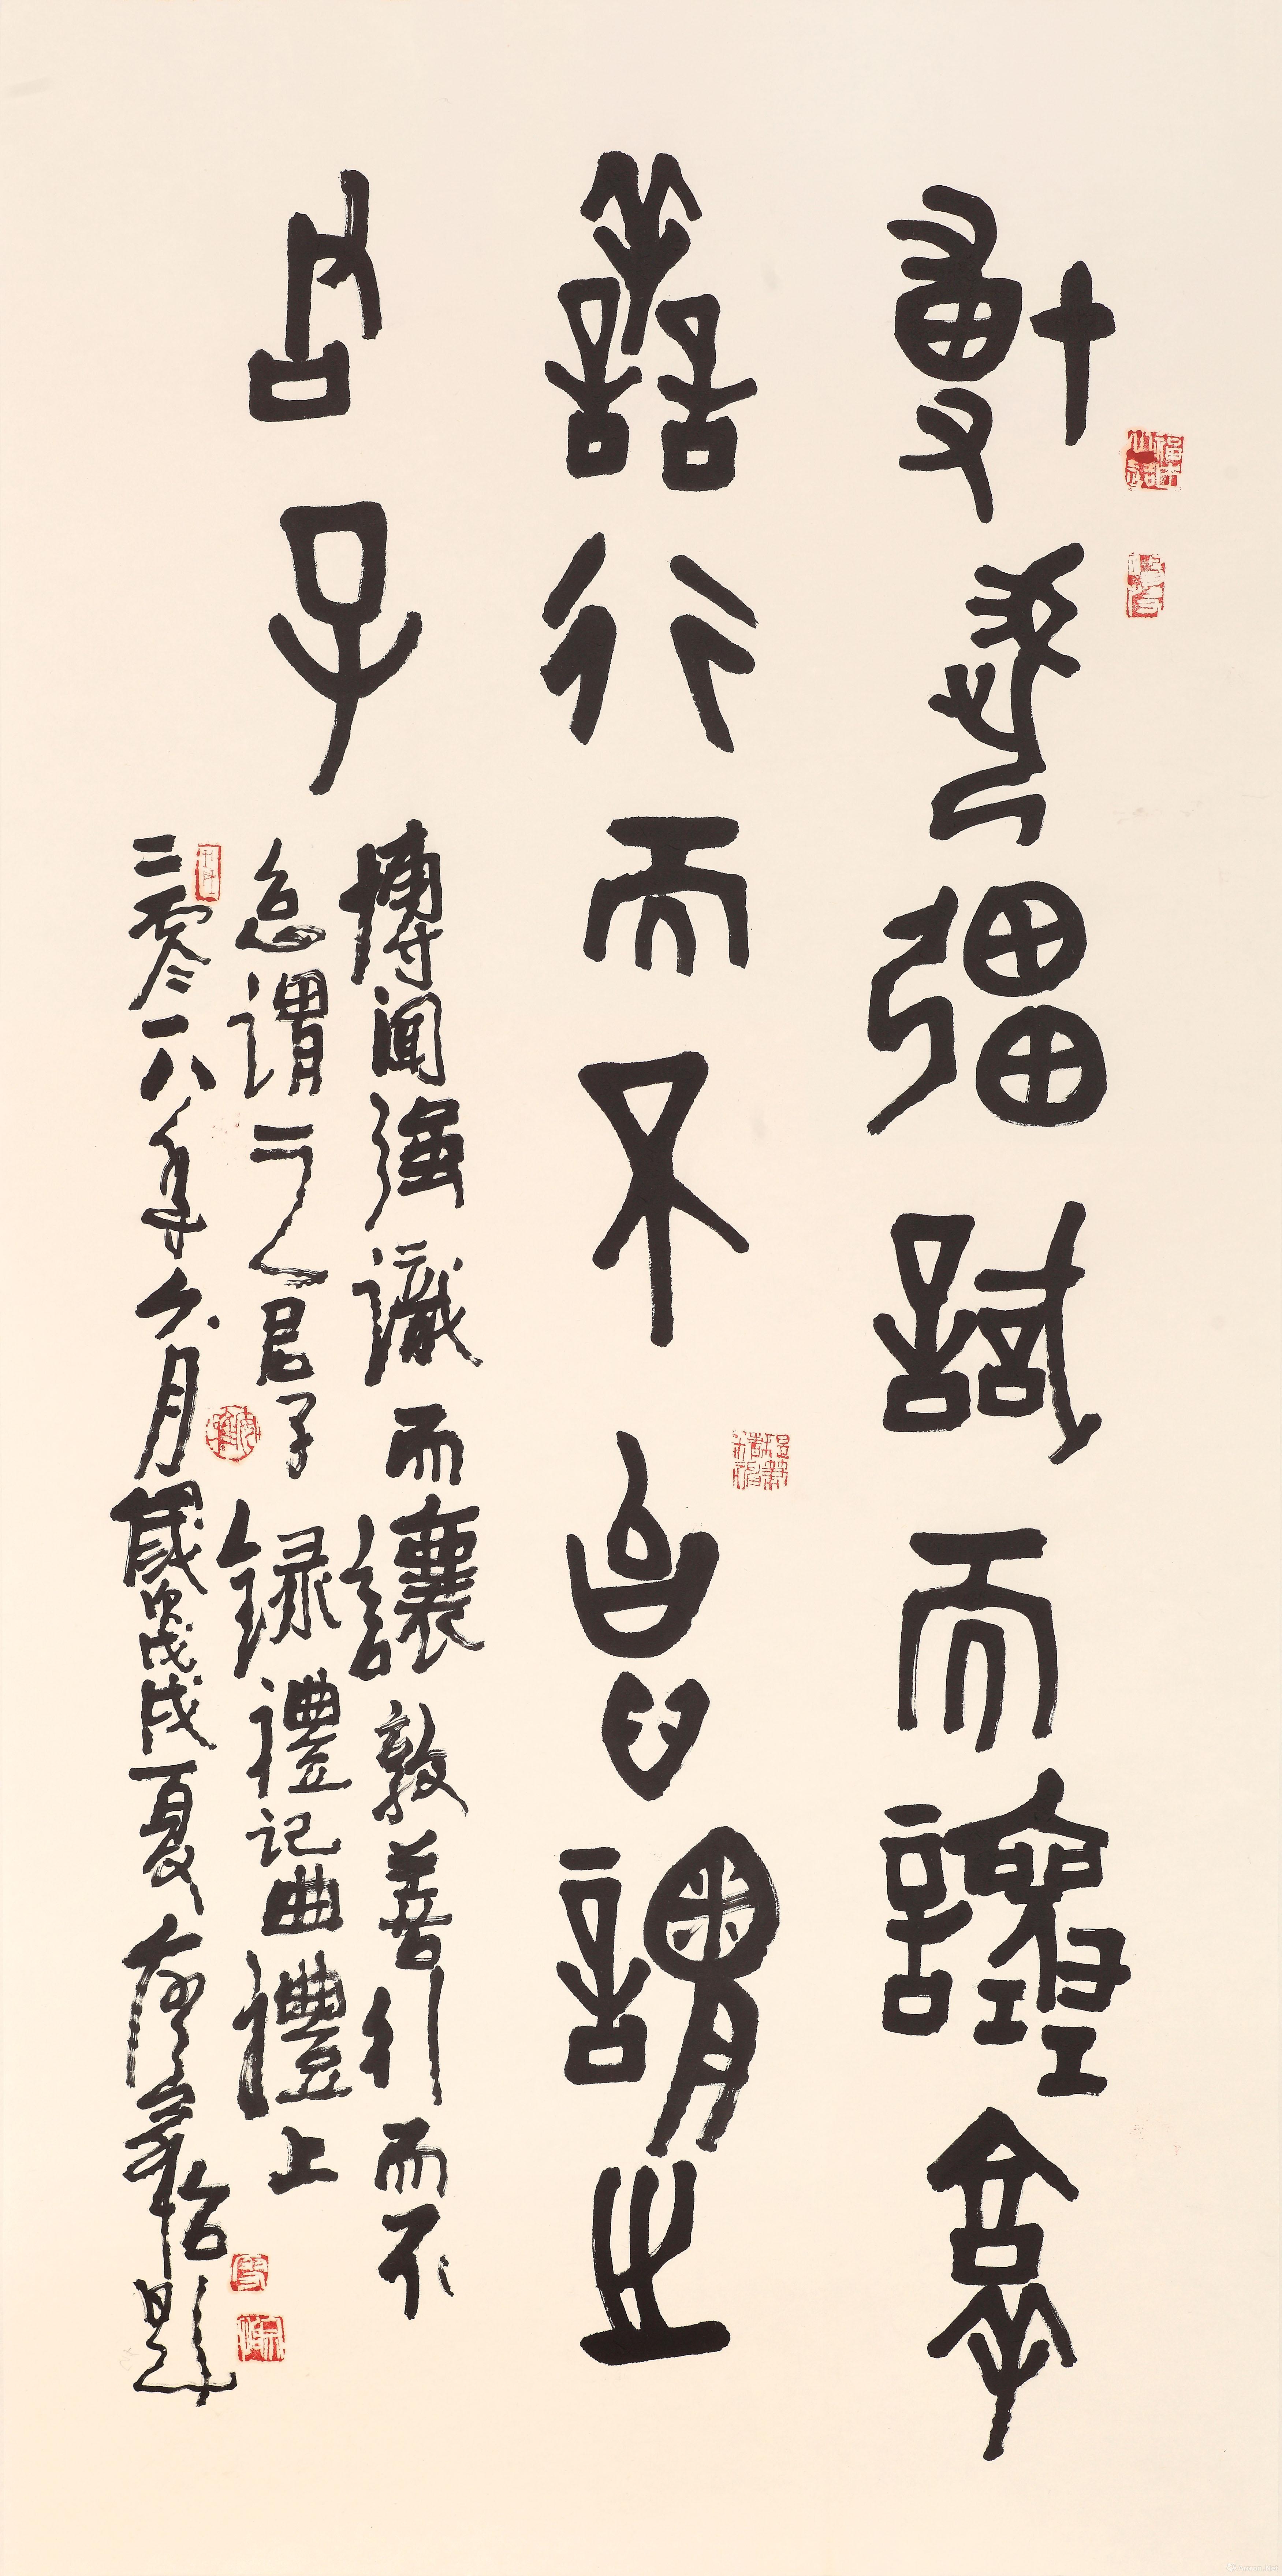 博聞彊識而讓敦
善行而不怠謂之
君子
博聞強識而讓敦善行而不
怠謂之君子錄禮記曲禮上
二零一八年六月歲次戊戌夏